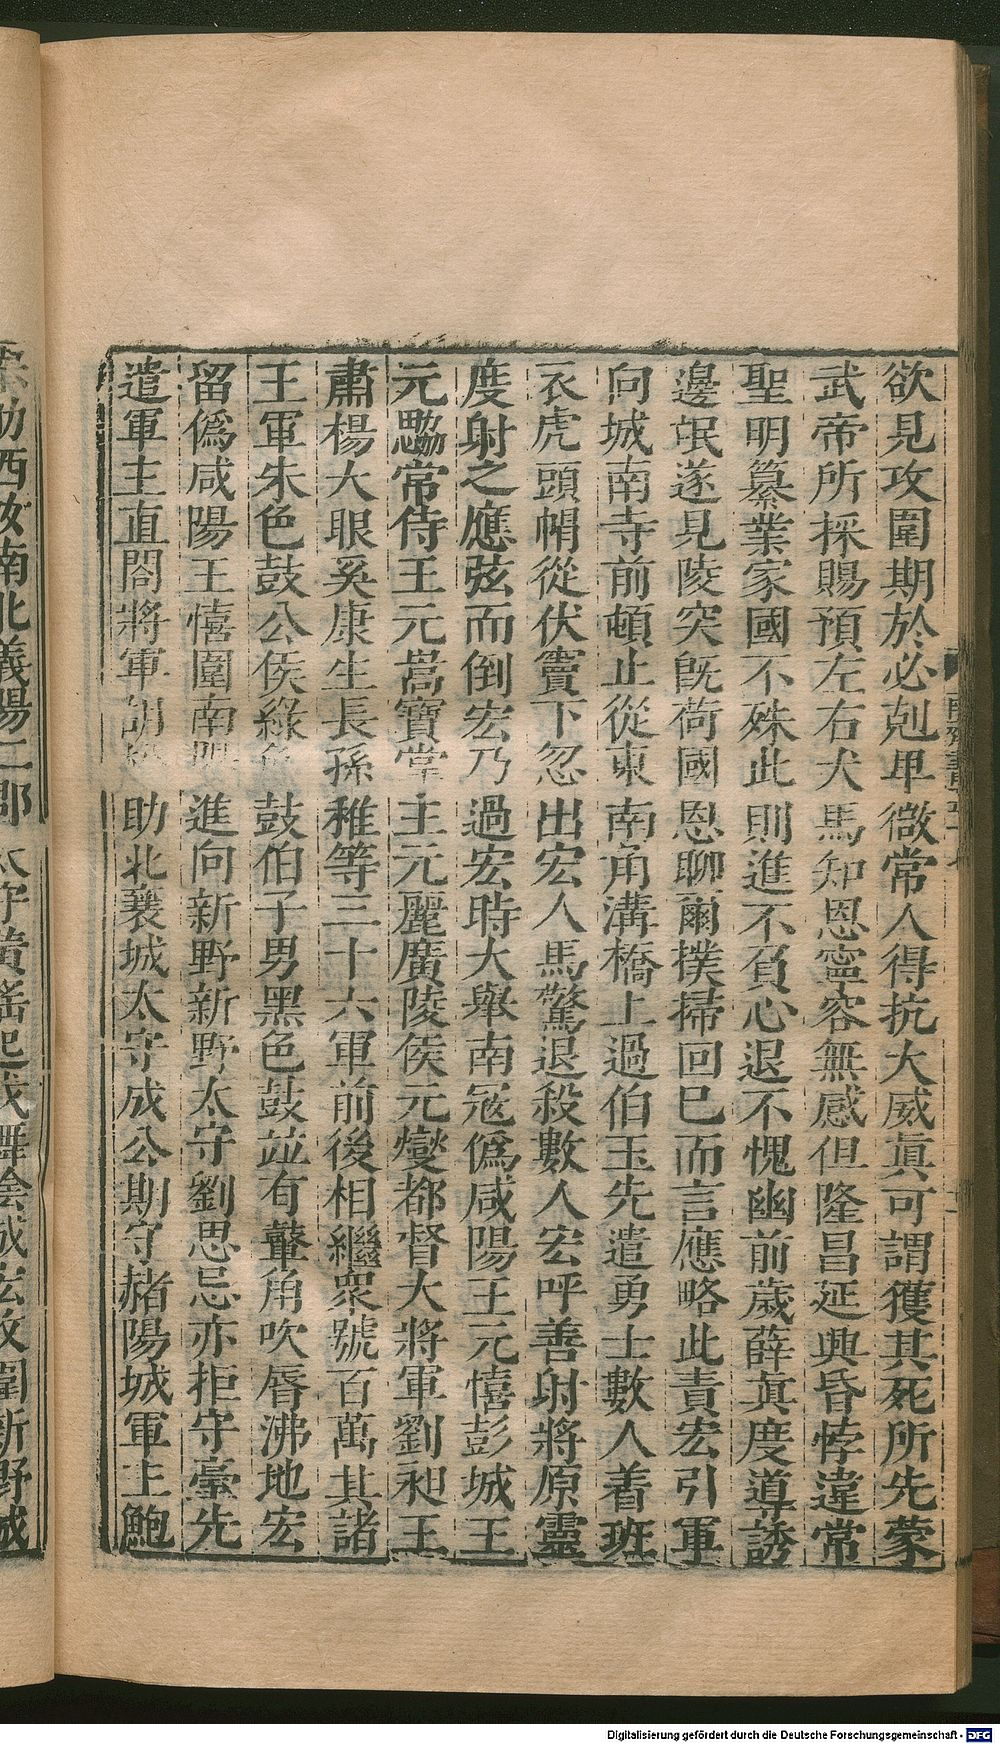 欲見攻圍期於必剋卑微常人得抗大威真可謂獲其死所先蒙
武帝所採賜預左右犬馬知恩寧容無感但隆昌延興昏悖違常
聖明纂業家國不殊此則進不負心退不愧幽前歲薛真度導誘
邊氓遂見陵突旣荷國恩聊爾撲掃回巳而言應略此責宏引軍
向城南寺前頓止從東南角溝橋上過伯玉先遣勇士數人着班
衣虎頭帽從伏竇下忽出宏人馬驚退殺數人宏呼善射將原靈
度射之應弦而倒宏乃過宏時大舉南寇僞咸陽王元憘彭城王
元勰常侍王元嵩寶掌王元麗廣陵侯元爕都督大將軍劉昶王
肅楊大眼奚康生長孫稚等三十六軍前後相繼衆號百萬其諸
王軍朱色鼓公侯綠色鼓伯子男黑色鼓並有鼙角吹脣沸地宏
留僞咸陽王憘圍南陽進向新野新野太守劉思忌亦拒守臺先
遣軍主直閤將軍胡松助北襄城太守成公期守赭陽城軍主鮑
西汝南北義陽二郡太守黃瑤起戍舞陰城宏攻圍新野城
Digitalisierung gefördert durch die Deutsche Forschungsgemeinschaft - DFG